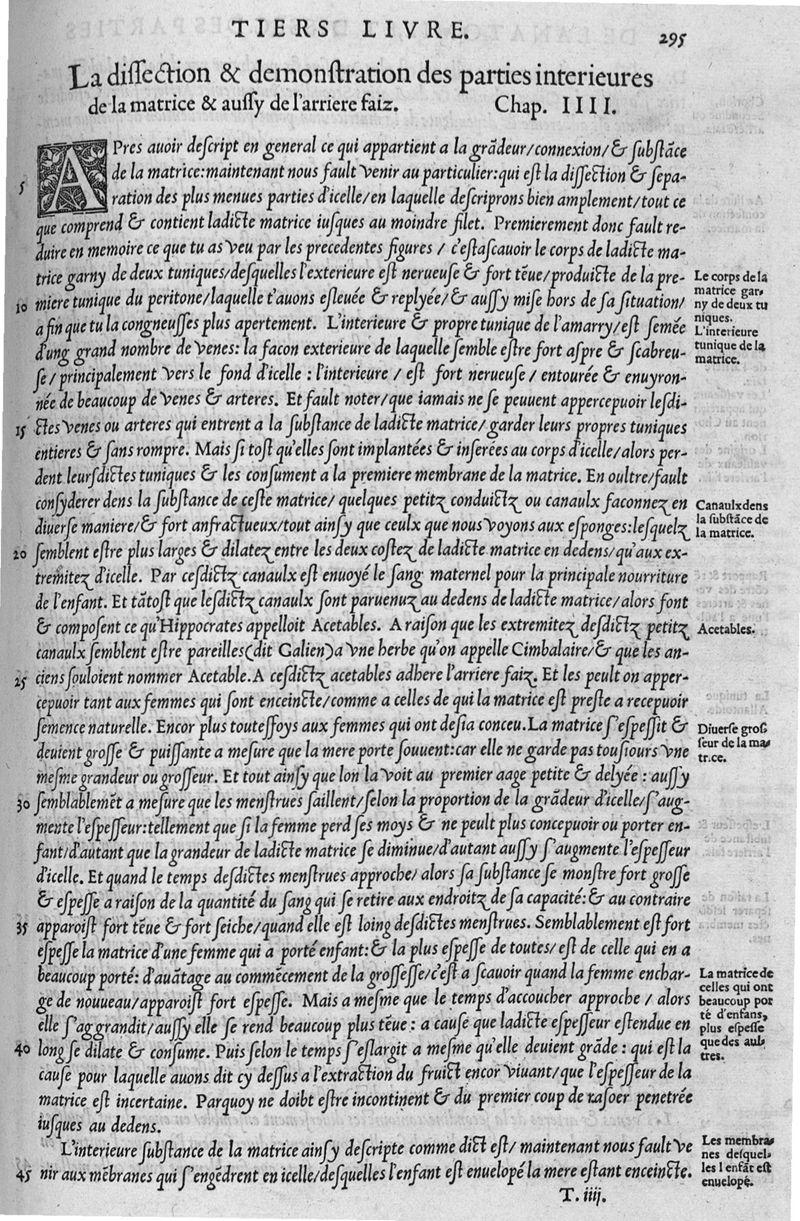 TIERS LIVRE.
295
La dissection & demonstration des parties interieures
de la matrice & aussy de l'arriere faiz. Chap. IIII.
APres auoir descript en general ce qui appartient a la grãdeur/connexion/& substãce
de la matrice:maintenant nous fault venir au particulier:qui est la dissection & sepa-
5
ration des plus menues parties d'icelle/en laquelle descriprons bien amplement/tout ce
que comprend & contient ladicte matrice iusques au moindre filet. Premierement donc fault re-
duire en memoire ce que tu as veu par les precedentes figures / c'estascauoir le corps de ladicte ma-
trice garny de deux tuniques/desquelles l'exterieure est nerueuse & fort tẽue/produicte de la pre-
10 miere tunique du peritone/laquelle t'auons esleuée & replyée/& aussy mise hors de sa situation/
a fin que tu la congneusses plus apertement. L'interieure & propre tunique de l'amarry/est semée
d'ung grand nombre de venes: la facon exterieure de laquelle semble estre fort aspre & scabreu-
se/principalement vers le fond d'icelle : l'interieure / est fort nerueuse / entourée & enuyron-
née de beaucoup de venes & arteres. Et fault noter/que iamais ne se peuuent appercepuoir lesdi-
15 ctes venes ou arteres qui entrent a la substance de ladicte matrice/garder leurs propres tuniques
entieres & sans rompre. Mais si tost qu'elles sont implantées & inserées au corps d'icelle/alors per-
dent leursdictes tuniques & les consument a la premiere membrane de la matrice. En oultre/fault
consyderer dens la substance de ceste matrice/quelques petitz conduictz ou canaulx faconnez en
diuerse maniere/& fort anfractueux/tout ainsy que ceulx que nous voyons aux esponges:lesquelz
20 semblent estre plus larges & dilatez entre les deux costez de ladicte matrice en dedens/qu'aux ex-
tremitez d'icelle. Par cesdictz canaulx est enuoyé le sang maternel pour la principale nourriture
de l'enfant. Et tãtost que lesdictz canaulx sont paruenuz au dedens de ladicte matrice/alors font
& composent ce qu'Hippocrates appelloit Acetables. A raison que les extremitez desdictz petitz
canaulx semblent estre pareilles(dit Galien)a vne herbe qu'on appelle Cimbalaire/& que les an-
25 ciens souloient nommer Acetable.A cesdictz acetables adhere l'arriere faiz. Et les peult on apper-
cepuoir tant aux femmes qui sont enceincte/comme a celles de qui la matrice est preste a recepuoir
semence naturelle. Encor plus toutesfoys aux femmes qui ont desia conceu.La matrice s'espessit &
deuient grosse & puissante a mesure que la mere porte souuent:car elle ne garde pas tousiours vne
mesme grandeur ou grosseur. Et tout ainsy que lon la voit au premier aage petite & delyée : aussy
30 semblablemẽt a mesure que les menstrues saillent/selon la proportion de la grãdeur d'icelle/s'aug-
mente l'espesseur:tellement que si la femme perd ses moys & ne peult plus concepuoir ou porter en-
fant/d'autant que la grandeur de ladicte matrice se diminue/d'autant aussy s'augmente l'espesseur
d'icelle. Et quand le temps desdictes menstrues approche/ alors sa substance se monstre fort grosse
& espesse a raison de la quantité du sang qui se retire aux endroitz de sa capacité:& au contraire
35 apparoist fort tẽue & fort seiche/quand elle est loing desdictes menstrues. Semblablement est fort
espesse la matrice d'une femme qui a porté enfant:& la plus espesse de toutes/est de celle qui en a
beaucoup porté: d'auãtage au commẽcement de la grossesse/c'est a scauoir quand la femme enchar-
ge de nouueau/apparoist fort espesse. Mais a mesme que le temps d'accoucher approche / alors
elle s'aggrandit/aussy elle se rend beaucoup plus tẽue : a cause que ladicte espesseur estendue en
40 long se dilate & consume. Puis selon le temps s'eslargit a mesme qu'elle deuient grãde : qui est la
cause pour laquelle auons dit cy dessus a l'extraction du fruict encor viuant/que l'espesseur de la
matrice est incertaine. Parquoy ne doibt estre incontinent & du premier coup de rasoer penetrée
iusques au dedens.
L'interieure substance de la matrice ainsy descripte comme dict est/maintenant nous fault ve
45 nir aux mẽbranes qui s'engẽdrent en icelle/desquelles l'enfant est enuelopé la mere estant enceincte.
T. iiij.
Le corps de la
matrice gar-
ny de deux tu
niques.
L'interieure
tunique de la
matrice.
Canaulx dens
la substãce de
la matrice.
Acetables.
Diuerse gros
seur de la ma
trice.
La matrice de
celles qui ont
beaucoup por
té d'enfans,
plus espesse
que des aul-
tres.
Les membra-
nes desquel-
les l enfãt est
enuelopé.